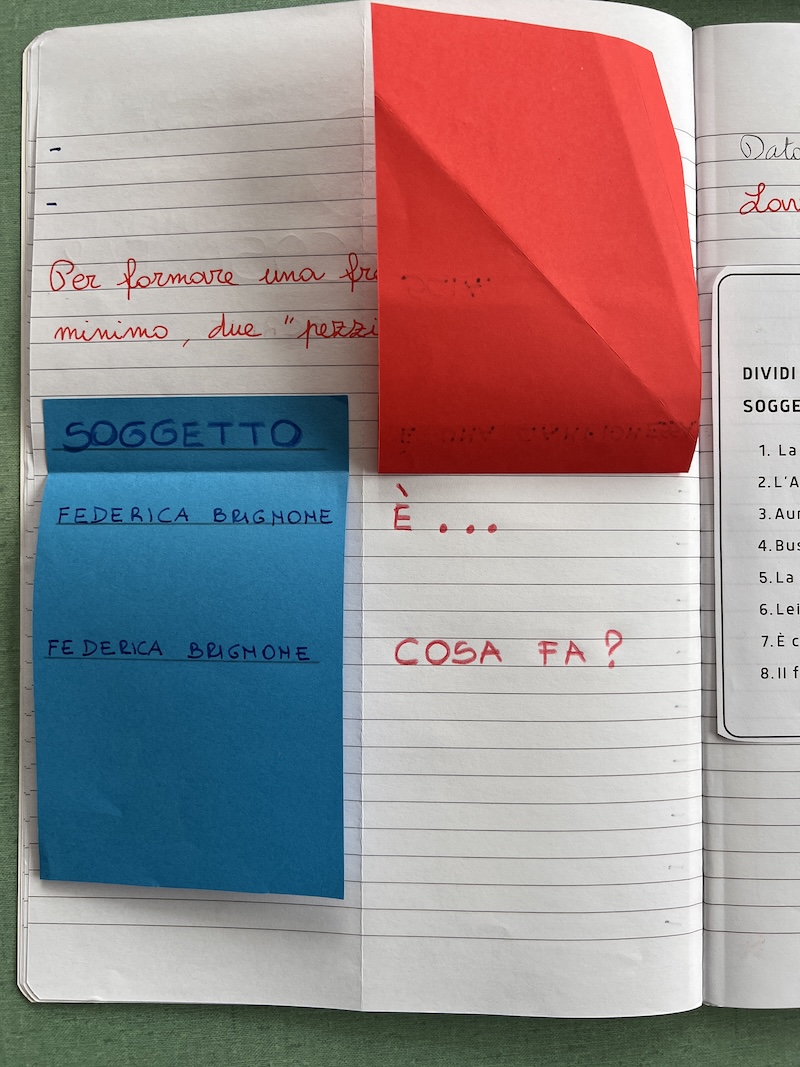 -
-
Per formare una
minimo, due "pezzi
SOGGETTO
FEDERICA BRIGNONE
FEDERICA BRIGNONE
È...
COSA FA?
DIVIDI
SOGGE
1. La
2. L'A
3. Aur
4. Bus
5. La
6. Lei
7. È c
8. Il f